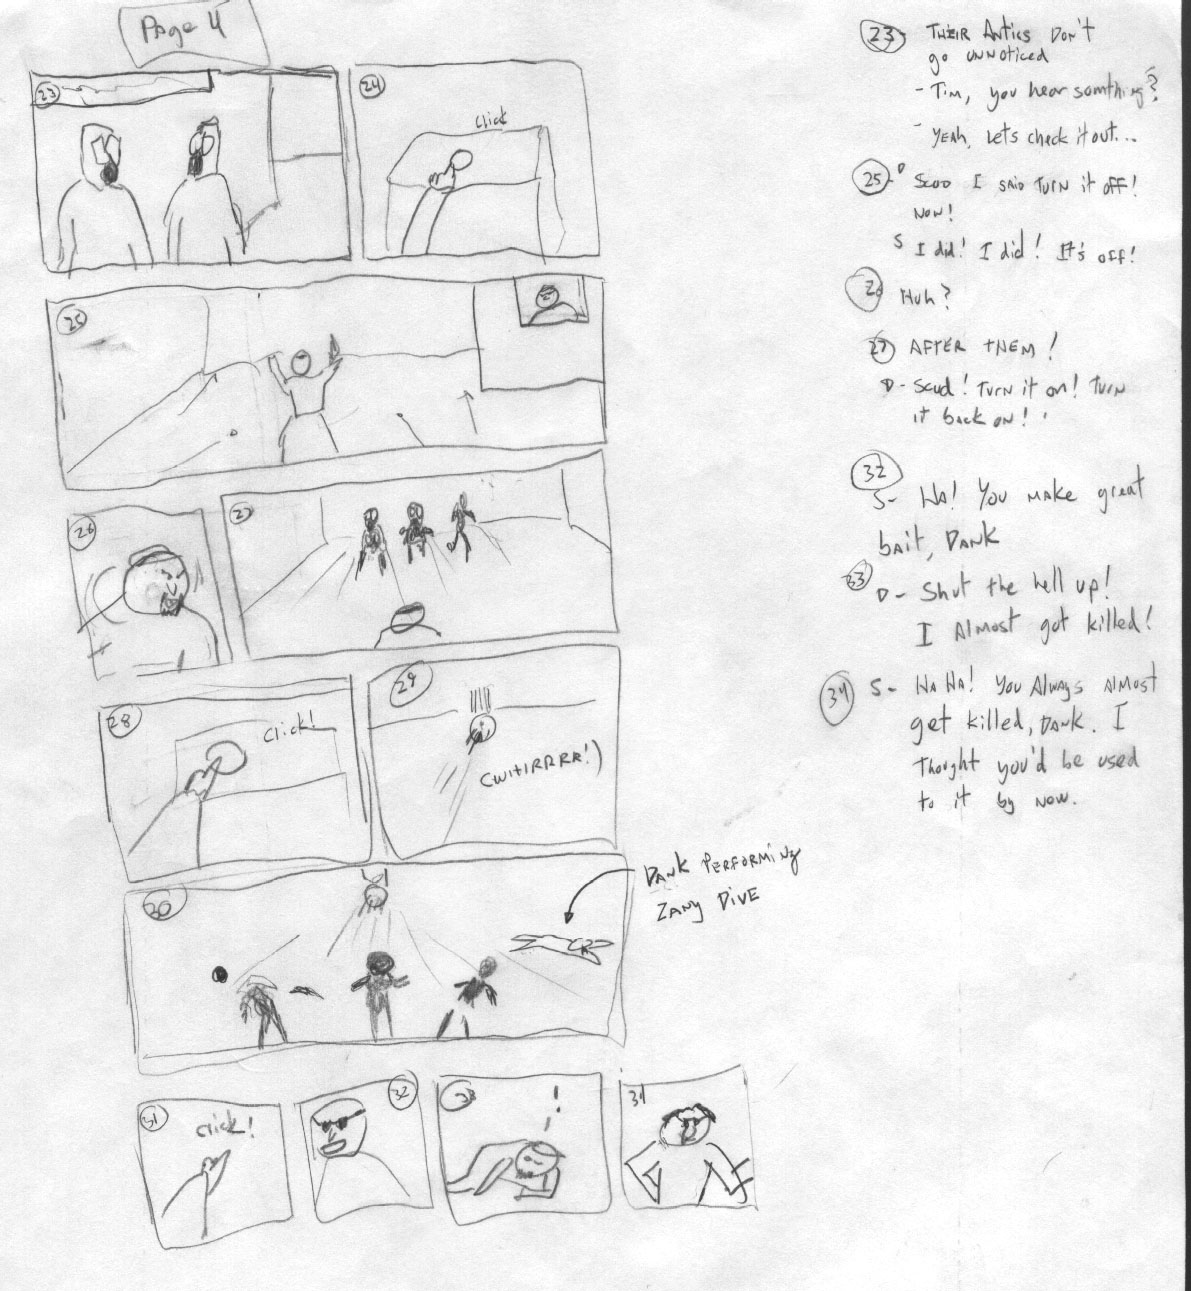 Page 4
23
24
click
25
26
27
28
click!
29
(WHIRRRR!)
30
DANK PERFORMING
ZANY DIVE
31
click!
32
33
!
34
23- THEIR Antics Don't
go unnoticed
- Tim, you hear somthing?
- YEAH, Lets check it out...
25- D Scud I said TURN it off!
Now!
S I did! I did! It's off!
26 Huh?
27 AFTER THEM!
D- Scud! Turn it on! Turn
it back on!
32
S- Ha! You make great
bait, Dank
33 D- Shut the hell up!
I Almost got killed!
34 S- Ha Ha! You Always Almost
get killed, Dank. I
Thought you'd be used
to it by now.